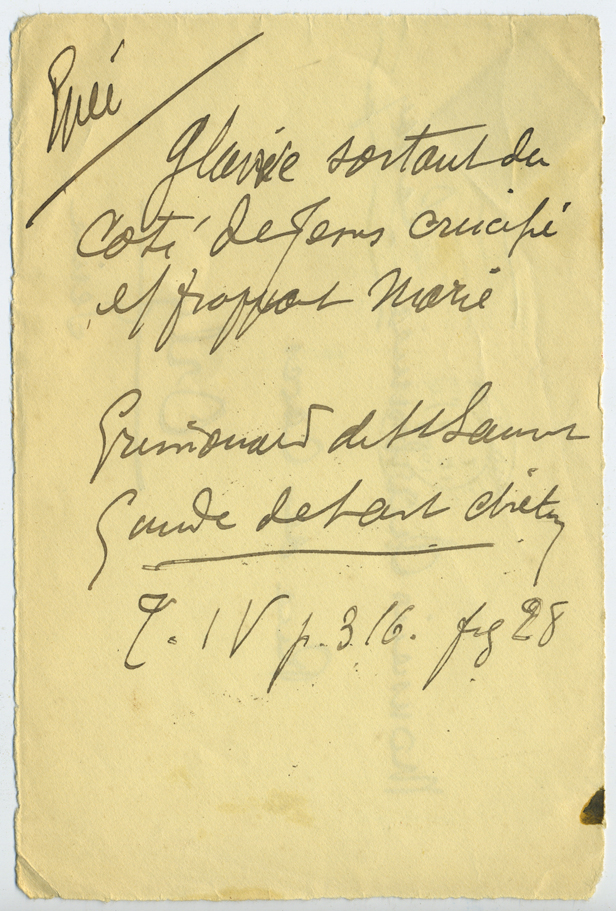 Epée
Glaive sortant du
Coté de Jesus crucifié
et frappant Marie
Grimouard de St Laurent
Guide de l'art chrétien
T. IV p. 316. fig 28